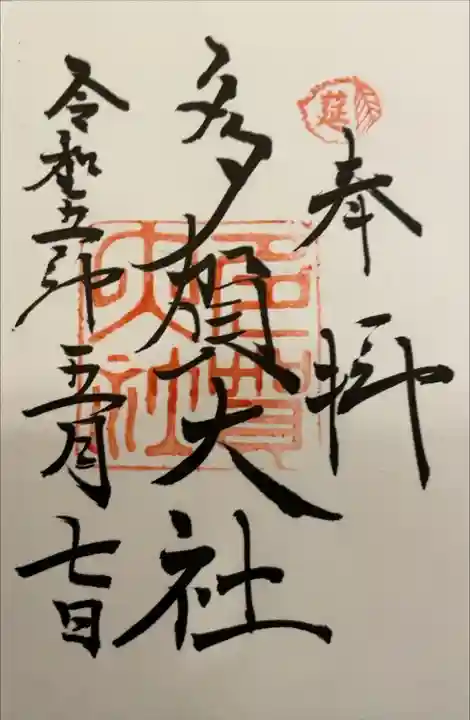 莚
奉拝
多賀大社
多賀大社
令和五年五月七日